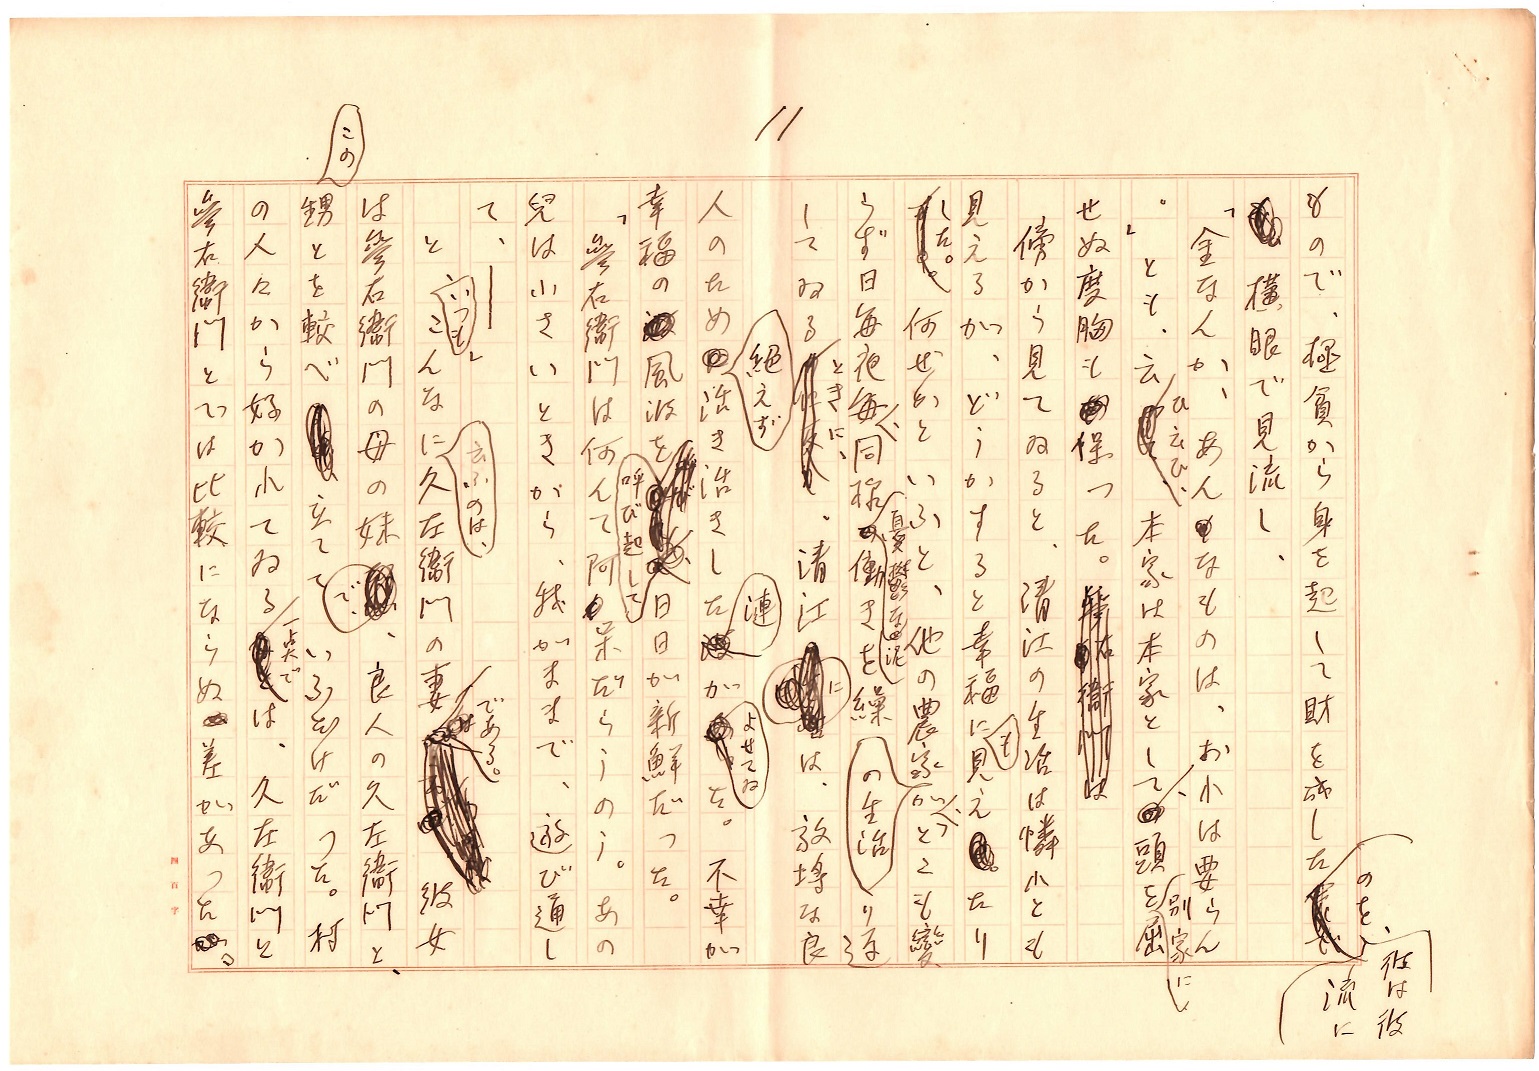 11
もので、極貧から身を起して財を成したのを、彼は彼流に
横眼で見流し、
「金なんか、あんなものは、おれは要らん
。」とも云ひ云ひ、本家は本家として、別家に頭を屈
せぬ度胸も保つた。
傍から見てゐると、清江の生活は憐れとも
見えるが、どうかすると幸福にも見えたり
した。何ぜかといふと、他の農家がどこも變
らず日毎夜毎、同様の生活
を繰り返
してゐるときに、清江には、放埓な良
人のため絶えず活き活きした漣がよせてゐた。不幸が
幸福の風波を呼び起して日日が新鮮だつた。
「 右衞門は何んて阿呆だらうのう。あの
兒は小さいときから、我がままで、遊び通し
て、――」
といつもこんなに云ふのは、久左衞門の妻である。彼女
は 右衞門の母の妹で、良人の久左衞門と、
この甥とを較べ立てていふだけだつた。村
の人々から好かれてゐる一点では、久左衞門と
右衞門とでは比較にならぬ差があつた。
四百字